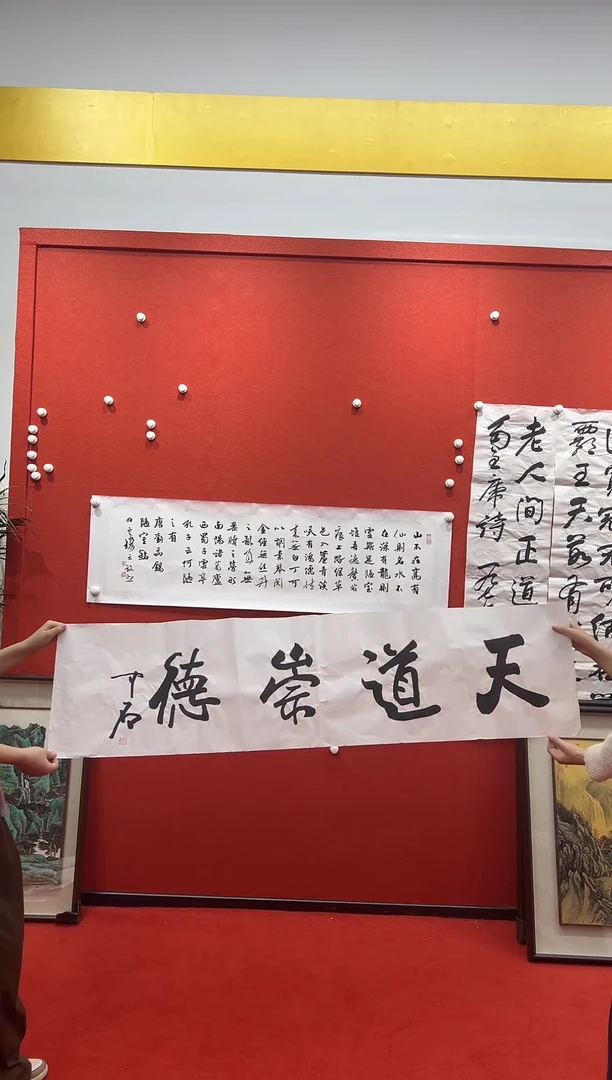 天道崇德
中石
山不在高有
仙則名水不
在深有龍則
靈斯是陋室
惟吾德馨苔
痕上階綠草
色入簾青談
笑有鴻儒往
來無白丁可
以調素琴閱
金經無絲竹
之亂耳無
案牘之勞形
南陽諸葛廬
西蜀子雲亭
孔子云何陋
之有
唐劉禹錫
陋室銘
可沽
霸王天若有
老人間正道
主席詩